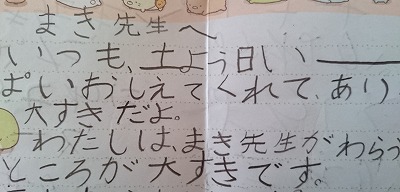 まき先生へ
いつも、土よう日い
ぱいおしえてくれて、あり
大すきだよ。
わたしは、まき先生がわらう
ところが大すきです。